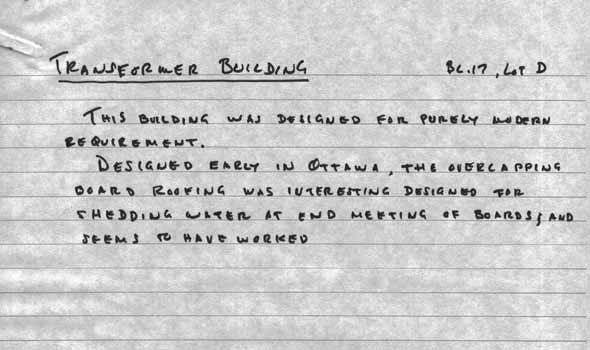 TRANSFORMER BUILDING BL.17, LOT D
THIS BUILDING WAS DESIGNED FOR PURELY MODERN
REQUIREMENT.
DESIGNED EARLY IN OTTAWA, THE OVERCAPPING
BOARD ROOFING WAS INTERESTING DESIGNED FOR
SHEDDING WATER AT END MEETING OF BOARDS; AND
SEEMS TO HAVE WORKED